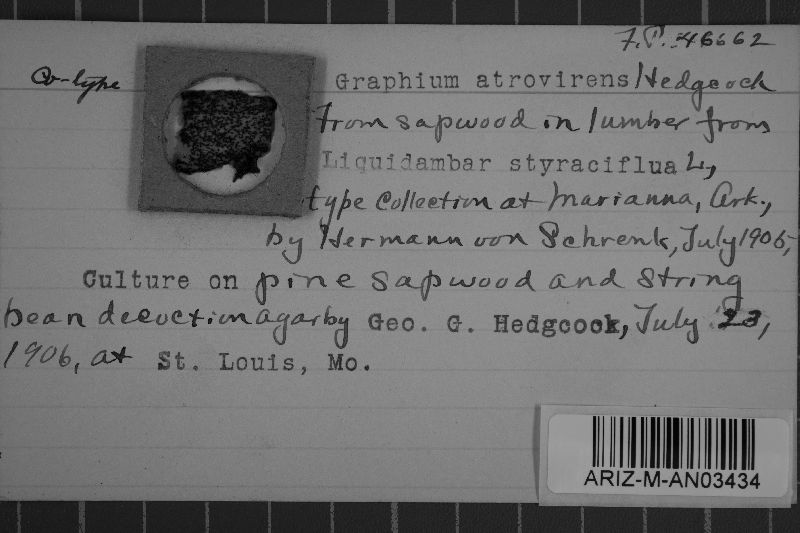 F.P. 46662
Co-type
Graphium atrovirens Hedgcock
from sapwood in lumber from
Liquidambar styraciflua L,
type collection at Marianna, Ark.,
by Hermann von Schrenk, July 1906,
Culture on pine sapwood and string
bean decoction agar by Geo. G. Hedgcock, July 23,
1906, at St. Louis, Mo.
ARIZ-M-AN03434